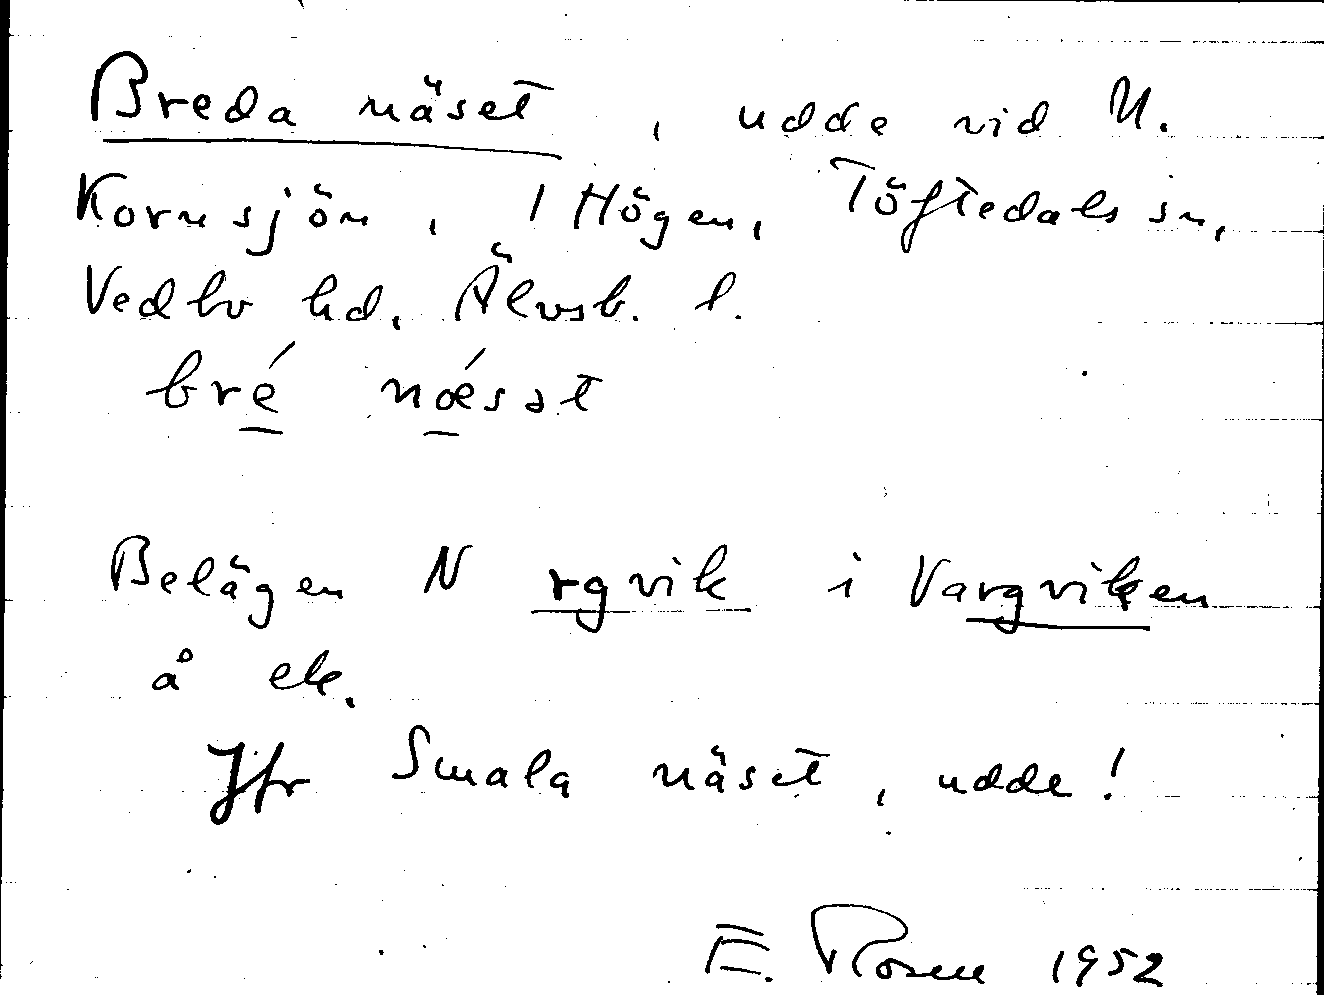 Breda näset, udde vid N.
Kornsjön, 1 Högen, Töftedals sn,
Vedbo hd, Älvsb. l.
bré næ´sət
Belägen N rgvik i Vargviken
å ek.
Jfr Smala näset, udde!
E. Rosell 1952